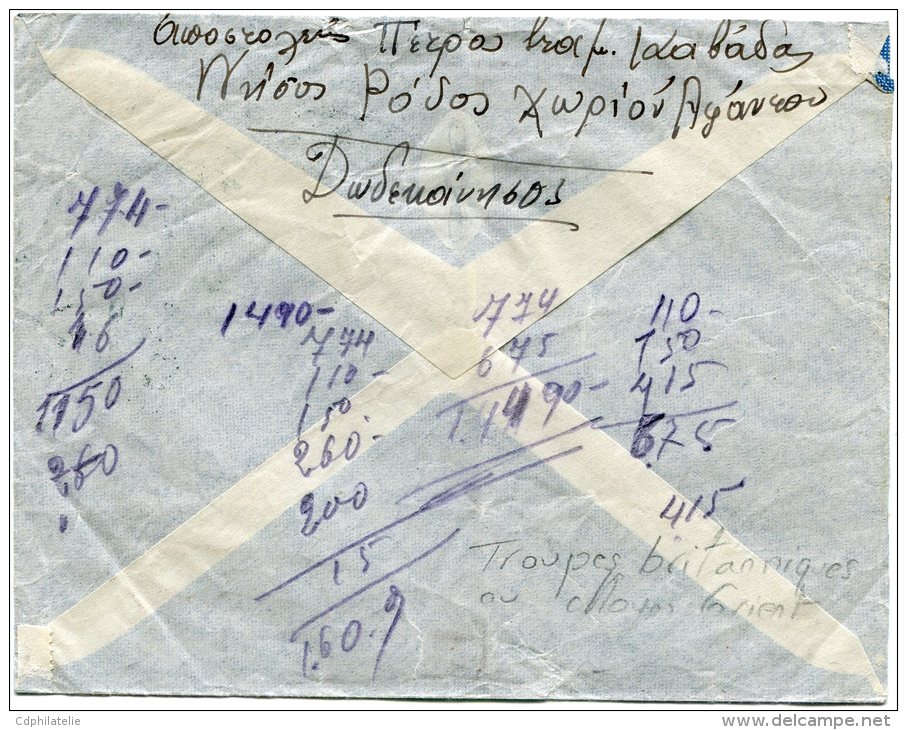 αποστολεύς Πέτρου Καβάδα
Νήσος Ρόδος Χωρίον Αφάντου
Δωδεκάνησος
774-
110-
150-
116
1150
260
1490-
774
110-
150
260-
200
15
774
675
1.4490-
110-
150
415
675
415
Troupes britanniques
au Moyen Orient
Cdphilatelie
delcampe.net